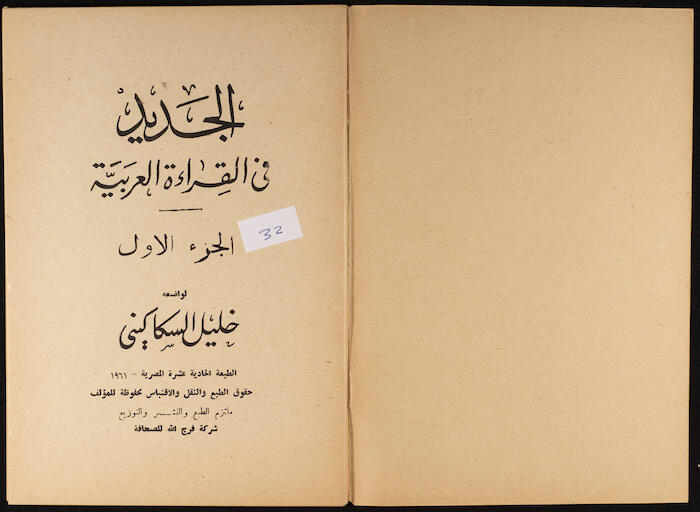 الجديد
في القراءة العربية
الجزء الاول
32
لواضعه
خليل السكاكيني
الطبعة الحادية عشرة المصرية - ١٩٦١
حقوق الطبع والنقل والاقتباس محفوظة للمؤلف
ملتزم الطبع والنشر والتوزيع
شركة فرج الله للصحافة